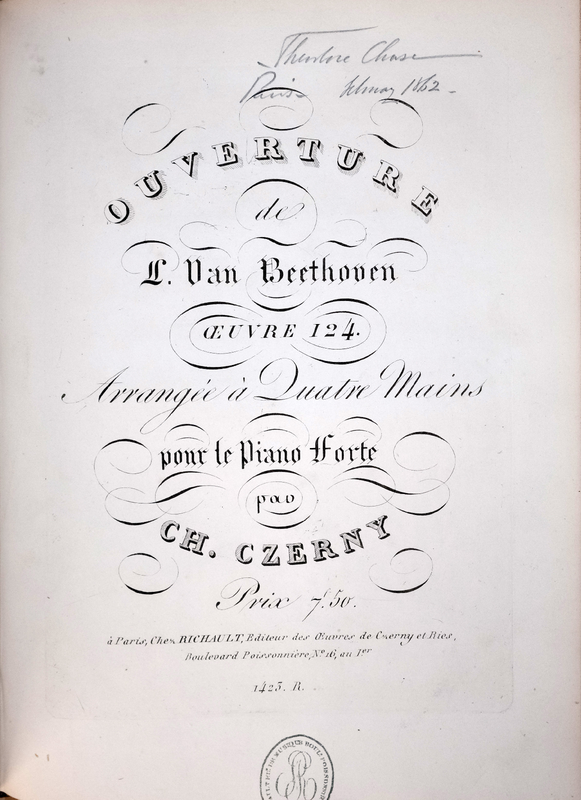 Theodore Chase
Paris 1862
OUVERTURE
de
L. Van Beethoven
ŒUVRE 124.
Arrangée à Quatre Mains
pour le Piano Forte
par
CH. CZERNY
Prix 7f. 50.
à Paris, Chez RICHAULT, Editeur des Œuvres de Czerny et Ries,
Boulevard Poissonnière, No. 16, au 1er
1423. R.